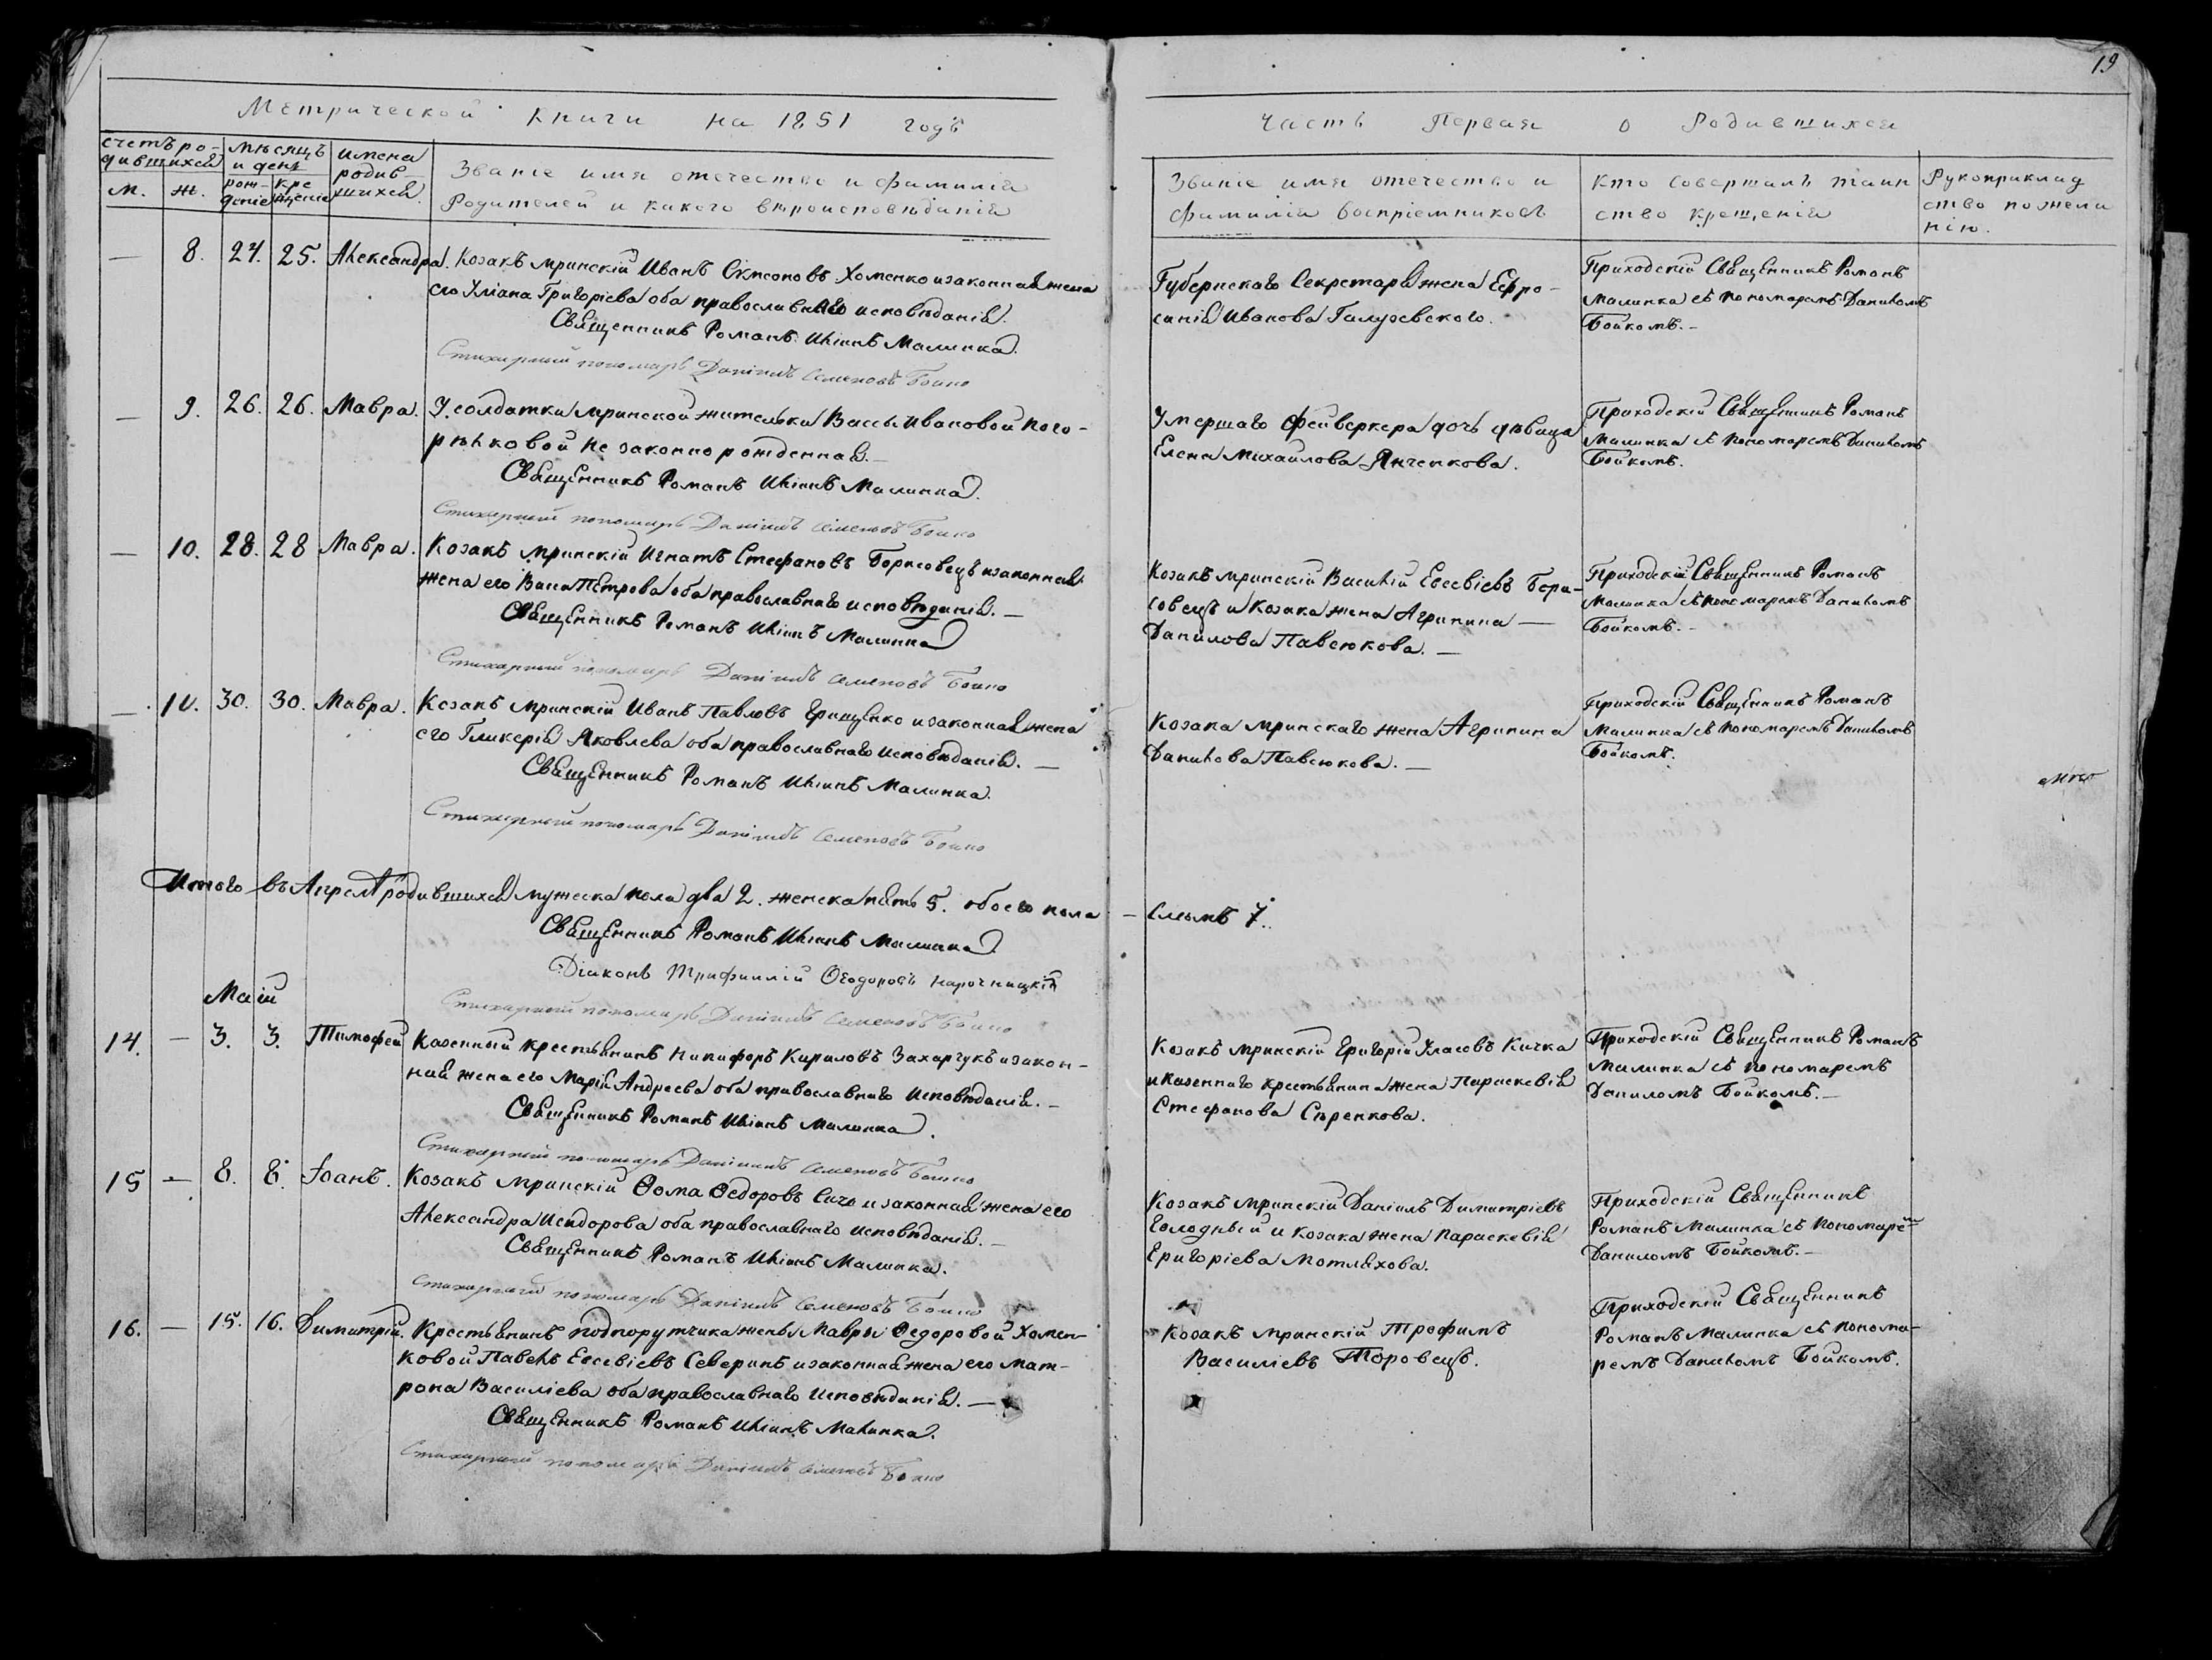 19
Метрической Книги на 1851 годъ
Часть Первая о Родившихся
Счетъ ро-
дившихся
м. ж.
Мѣсяцъ
и день
рож-
деніе
кре
щеніе
имена
родив-
шихся.
Званіе имя отечество и фамилія
Родителей и какого вѣроисповѣданія
Званіе имя отечество и
фамилія воспріемниковъ
Кто совершалъ таин
ство крещенія
Рукоприклад
ство по жела
нію.
— 8. 24. 25. Александра. Козакъ мринскій Иванъ Хоменко и законная жена
его Григоріева оба православнаго исповѣданія.
Священникъ Романъ Иліинъ Малинка.
Стихарный пономарь Даніилъ Семеновъ Бойко
Губернскаго Секретаря жена Ефро-
синія Иванова
Приходскій Священникъ Романъ
Малинка съ Пономаремъ Даниломъ
Бойкомъ.-
— 9. 26. 26. Мавра. У солдатки мринской жительки Вассы Ивановой Пого-
рѣлковой не законнорожденная.—
Священникъ Романъ Иліинъ Малинка.
Стихарный пономарь Даніилъ Семеновъ Бойко
Умершаго Фейверкера дочь дѣвица
Елена Михайлова Янченкова.
Приходскій Священникъ Романъ
Малинка съ Пономаремъ Даниломъ
Бойкомъ.
— 10. 28. 28 Мавра. Козакъ мринскій Игнатъ Стефановъ Борисовецъ и законная
жена его Васса Петрова оба православнаго исповѣданія.—
Священникъ Романъ Иліинъ Малинка
Стихарный пономарь Даніилъ Семеновъ Бойко
Козакъ мринскій Василій Евсевіевъ Бори-
совецъ и козака жена Агрипина —
Данилова Павсюкова.—
Приходскій Священникъ Романъ
Малинка съ Пономаремъ Даниломъ
Бойкомъ.-
— 11. 30. 30. Мавра. Козакъ мринскій Иванъ Павловъ Грищенко и законная жена
его Гликерія Яковлева оба православнаго исповѣданія.—
Священникъ Романъ Иліинъ Малинка.
Стихарный пономарь Даніилъ Семеновъ Бойко
Козака мринскаго жена Агрипина
Данилова Павсюкова.—
Приходскій Священникъ Романъ
Малинка съ Пономаремъ Даниломъ
Бойкомъ.
Итого въ Апрелѣ родившихся мужеска пола два 2. женска пять 5. обоего пола — семь 7.
Священникъ Романъ Иліинъ Малинка.
Діаконъ Трифиллій Ѳеодоровъ Нарочницкій
Стихарный пономарь Даніилъ Семеновъ Бойко
Маій
14. — 3. 3. Тимофей Казенный крестьянинъ Никифоръ Кириловъ Захарчукъ и закон-
ная жена его Марія Андреева оба православнаго исповѣданія.—
Священникъ Романъ Иліинъ Малинка.
Стихарный пономарь Даніилъ Семеновъ Бойко
Козакъ мринскій Григорій Власовъ Кичка
и казеннаго крестьянина жена Параскевія
Стефанова Сѣренкова.
Приходскій Священникъ Романъ
Малинка съ Пономаремъ
Даниломъ Бойкомъ.—
15 — 8. 8. Іоанъ. Козакъ мринскій Ѳома Ѳедоровъ Сичъ и законная жена его
Александра Исидорова оба православнаго исповѣданія.—
Священникъ Романъ Иліинъ Малинка.
Стихарный пономарь Даніилъ Семеновъ Бойко
Козакъ мринскій Даніилъ Димитріевъ
Голодный и козака жена Параскевія
Григоріева Мотляхова.
Приходскій Священникъ
Романъ Малинка съ Пономаремъ
Даниломъ Бойкомъ.—
16. — 15. 16. Димитрій. Крестьянинъ подпорутчика жены Мавры Ѳедоровой Хомен-
ковой Павелъ Евсевіевъ Северинъ и законная жена его Мат-
рона Василіева оба православнаго исповѣданія.—
Священникъ Романъ Иліинъ Малинка.
Стихарный пономарь Даніилъ Семеновъ Бойко
Козакъ мринскій Трофимъ
Василіевъ Торовецъ.
Приходскій Священникъ
Романъ Малинка съ Понома-
ремъ Даниломъ Бойкомъ.